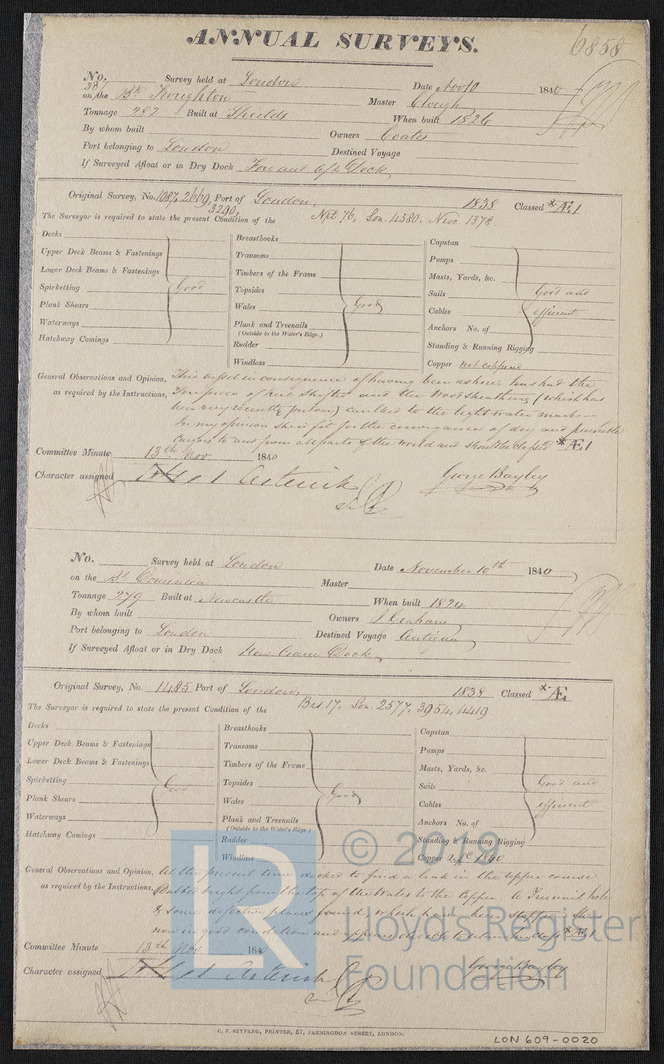 ANNUAL SURVEYS.
6858
No. 38 Survey held at London Date Nov 10 1840
on the Bk Troughton Master Clough
Tonnage 282 Built at Shields When built 1826
By whom built Owners Coates
Port belonging to London Destined Voyage
If Surveyed Afloat or in Dry Dock Fore and Aft Dock
Original Survey, No. 1087, 2669, Port of London, 1838 Classed *Æ1
3290,
The Surveyor is required to state the present Condition of the Npt 76, Lon. 4380, Newc 1378
Decks
Upper Deck Beams & Fastenings
Lower Deck Beams & Fastenings
Spirketting Good
Plank Shears
Waterways
Hatchway Comings
Breasthooks
Transoms
Timbers of the Frame
Topsides
Wales Good
Plank and Treenails
(Outside to the Water's Edge.)
Rudder
Windlass
Capstan
Pumps
Masts, Yards, &c.
Sails Good and
Cables efficient
Anchors No. of
Standing & Running Rigging
Copper not coppered
General Observations and Opinion, This vessel in consequence of having been ashore has had the
as required by the Instructions, and the Wood Sheathing (which has
been very recently put on) caulked to the light water mark
In my opinion she is fit for the conveyance of dry and perishable
Cargoes to and from all parts of the World and should be classed *Æ1
Committee Minute 13th Nov 1840
Character assigned A1 Asterisk George Bayley
No. Survey held at London Date November 10th 1840
on the Bk Master
Tonnage 279 Built at Newcastle When built 1824
By whom built Owners J Graham
Port belonging to London Destined Voyage Antigua
If Surveyed Afloat or in Dry Dock New Crane Dock
Original Survey, No. 1485 Port of London, 1838 Classed *Æ
The Surveyor is required to state the present Condition of the Brs. 17, Lon. 2577, 3954, 4419
Decks
Upper Deck Beams & Fastenings
Lower Deck Beams & Fastenings
Spirketting Good
Plank Shears
Waterways
Hatchway Comings
Breasthooks
Transoms
Timbers of the Frame
Topsides
Wales Good
Plank and Treenails
(Outside to the Water's Edge.)
Rudder
Windlass
Capstan
Pumps
Masts, Yards, &c.
Sails Good and
Cables efficient
Anchors No. of
Standing & Running Rigging
Copper 1840
General Observations and Opinion, At the present time docked to find a leak in the upper course
as required by the Instructions, bright from the top of the Wales to the Copper. A Treenail hole
& some defective places found, which have been stopped. She is
now in good condition and appears *Æ1
Committee Minute 13th Nov 1840
Character assigned A1 Asterisk George Bayley
© 2019
Lloyd's Register
Foundation
LR
C. F. SEYFANG, PRINTER, 57, FARRINGDON STREET, LONDON.
LON 609-0020